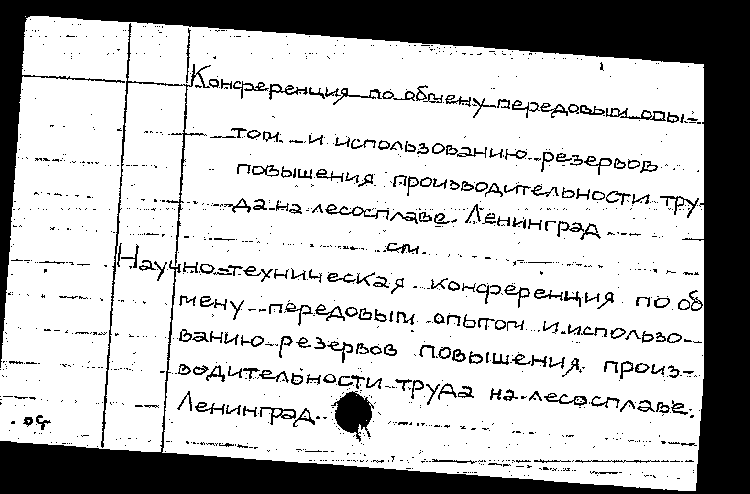 Конференция по обмену передовым опы-
том и использованию резервов
повышения производительности тру-
да на лесосплаве. Ленинград
см.
Научно-техническая конференция по об
мену передовым опытом и использо-
ванию резервов повышения произ-
водительности труда на лесосплаве.
Ленинград.